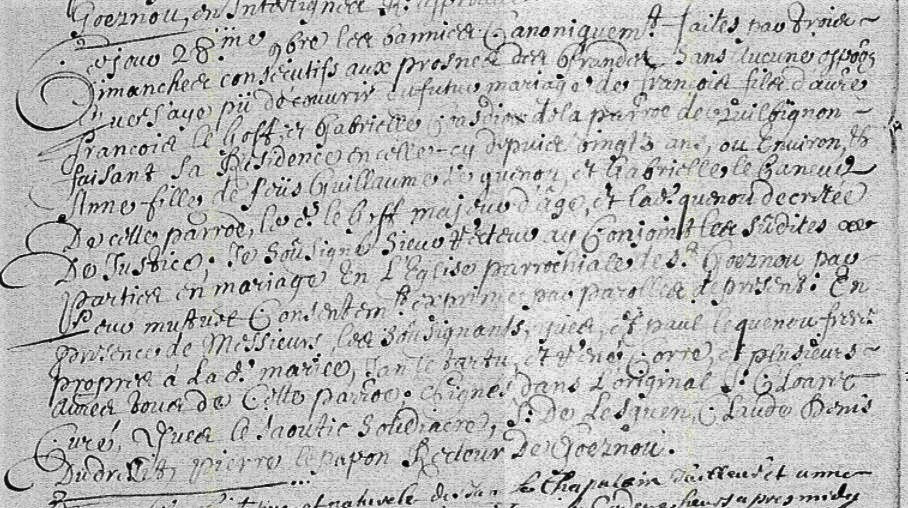 Goeznou, en
Ce jour 28ime 9bre les bannies Canoniquemt faites par trois
Dimanches consecutifs aux prosnes des Grandes sans aucune
que j'aye pü découvrir du futur mariage de françois fils d'autre
françois le Goff, et Gabrielle de la parroe de Quilbignon
faisant sa Résidence en celle-cy depuis vingts ans, ou Environ, Et
Anne fille de feüs Guillaume Lequenou, et Gabrielle le
De cette parroe, le d. le Goff majeur d'âge, et la d. quenou decrétée
De Justice, Je Soussigné Sieur Recteur ay Conjoint les Susdites
Parties en mariage En L'Eglise parrochiale de St. Goeznou par
Leur mutuel Consentemt exprimé par parolles de présent: En
présence de Messieurs les Soussignants, et paul lequenou frere
propre à la d. mariée, Jan le tartu, et René Corre, et plusieurs
autres tous de Cette parroe. Signés dans L'original J. Cloarec
Curé, Yves le Saoutic Soudiacre, J. De Lesguen, Claude Denis
pierre le papon Recteur De Goeznou.
et naturele de Jan le Chapalain et anne